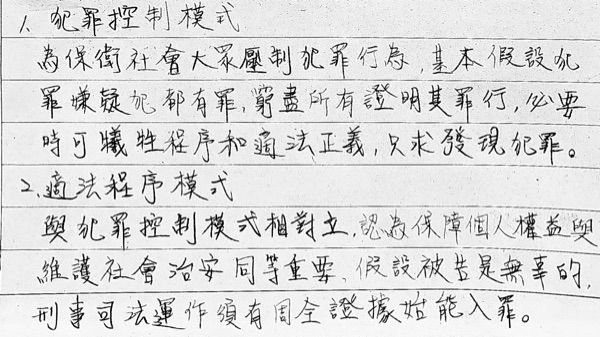 1. 犯罪控制模式
為保衛社會大眾壓制犯罪行為,基本假設犯
罪嫌疑犯都有罪,窮盡所有證明其罪行,必要
時可犧牲程序和適法正義,只求發現犯罪。
2. 適法程序模式
與犯罪控制模式相對立,認為保障個人權益與
維護社會治安同等重要,假設被告是無辜的,
刑事司法運作須有周全證據始能入罪。